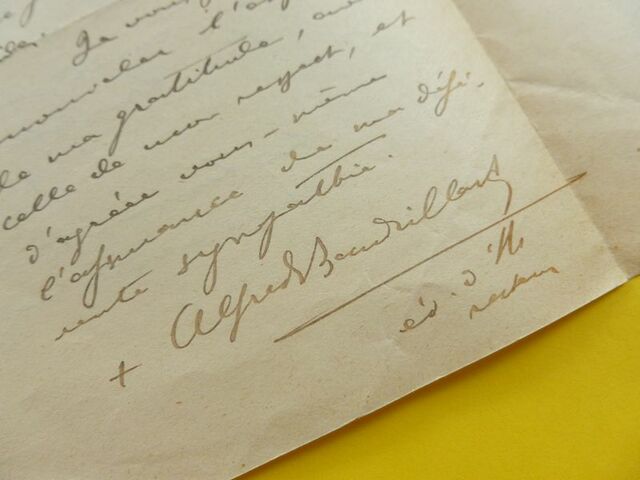 Je vous
l'
ma gratitude, avec
celle de mon respect, et
d'agréer vous-même
l'assurance de ma défé-
rente sympathie.
+ Alfred Baudrillart
év. d'H.
recteur